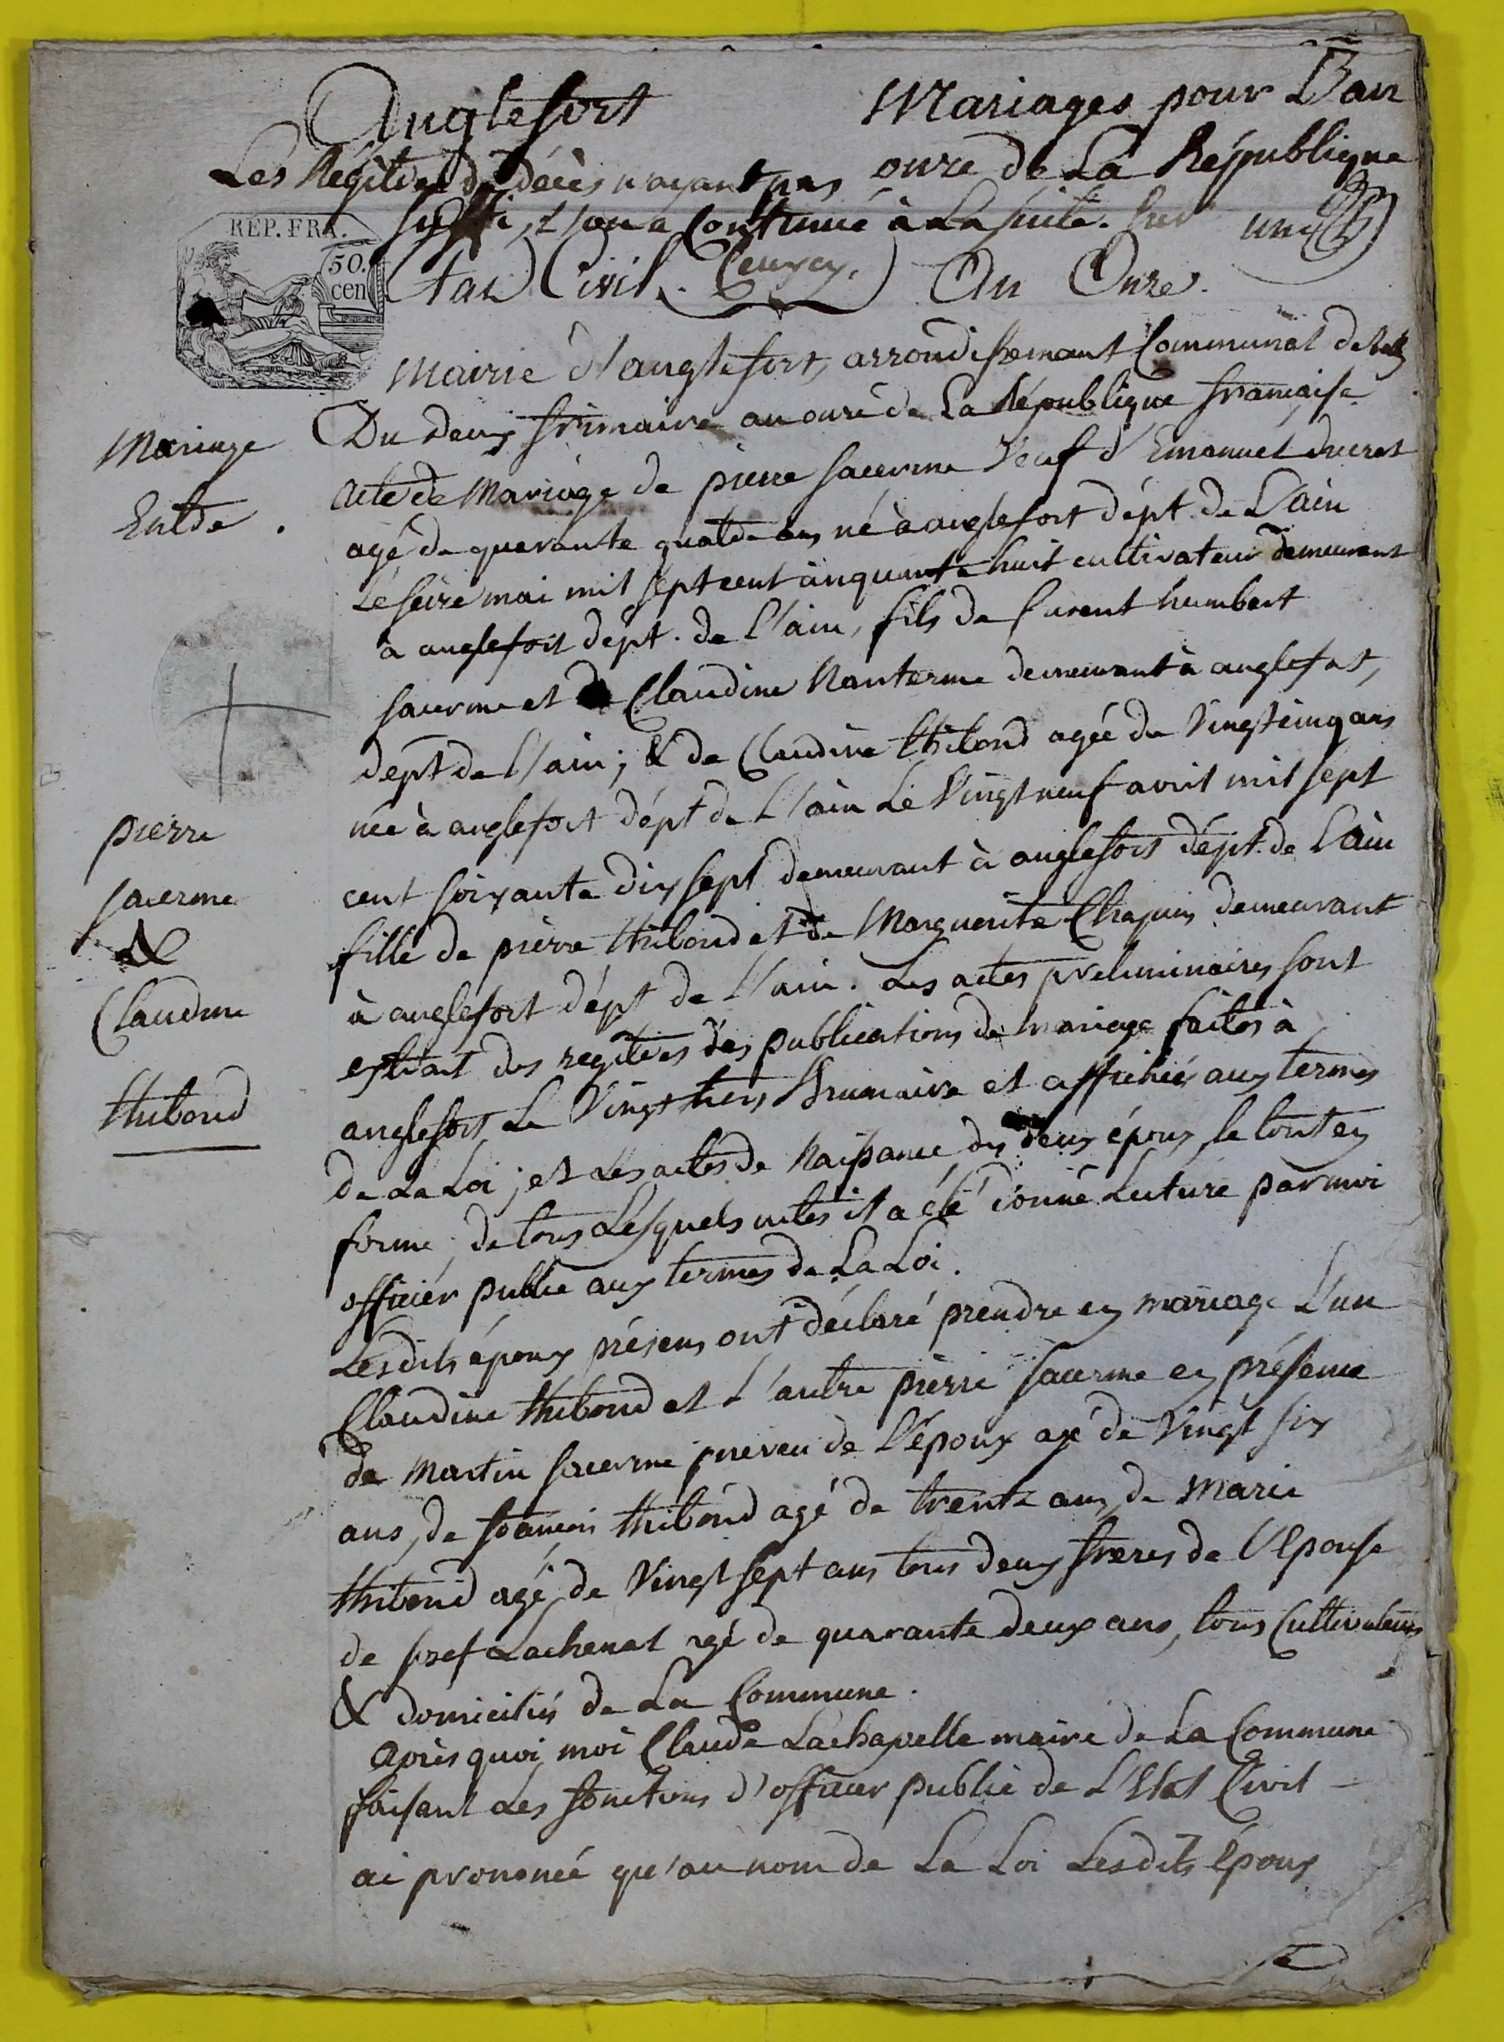 Anglefort
Mariages pour L'an
onze de La République
Les Régitres de décès n'ayant pas
suffi, l'on a Continué à La suite. sur
un
REP. FRA.
50.
cen
tat Civil. An Onze.
Mairie d'anglefort, arrondissemant Communal de
Du deux frimaire an onze de La République francaise
Mariage
Entde.
acte de Mariage de pierre sacerme Veuf d'Emanuel ducret
agé de quarante quatde ans né à anglefort dépt. de L'ain
Le seize mai mil sept cent cinquante huit cultivateur demeurant
à anglefort dépt. de L'ain, fils de humbert
sacerme et de Claudine Nanterme demeurant à anglefort,
dept de L'ain; & de Claudine thibond agée de Vingt cinq ans
née à anglefort dépt de L'ain Le Vingt neuf avril mil sept
cent soixante dix sept demeurant à anglefort dépt. de L'ain
fille de pierre thibond et de Marguerite Chapuis demeurant
à anglefort dépt de L'ain. Les actes preliminaires sont
extrait des regitres des publications de mariage faites à
anglefort Le Vingt tiers Brumaire et affichés aux termes
de La Loi; et Les actes de Naissance des deux époux, le tout en
forme; de tous Lesquels actes il a été donné Lecture par moi
officier public aux termes de La Loi.
pierre
sacerme
&
Claudine
thibond
Lesdits époux présens ont déclaré prendre en mariage L'un
Claudine thibond et L'autre pierre sacerme en présence
de Martin sacerme neveu de L'époux agé de Vingt six
ans, de francois thibond agé de trente ans, de Marie
thibond agé de Vingt sept ans tous deux freres de L'Epouse
de josef Lachenal agé de quarante deux ans, tous Cultivateurs
& domiciliés de La Commune.
après quoi, moi Claude Lachapelle maire de La Commune
faisant Les fonctions d'officier public de L'Etat Civil
ai prononcé qu'au nom de La Loi Lesdits époux